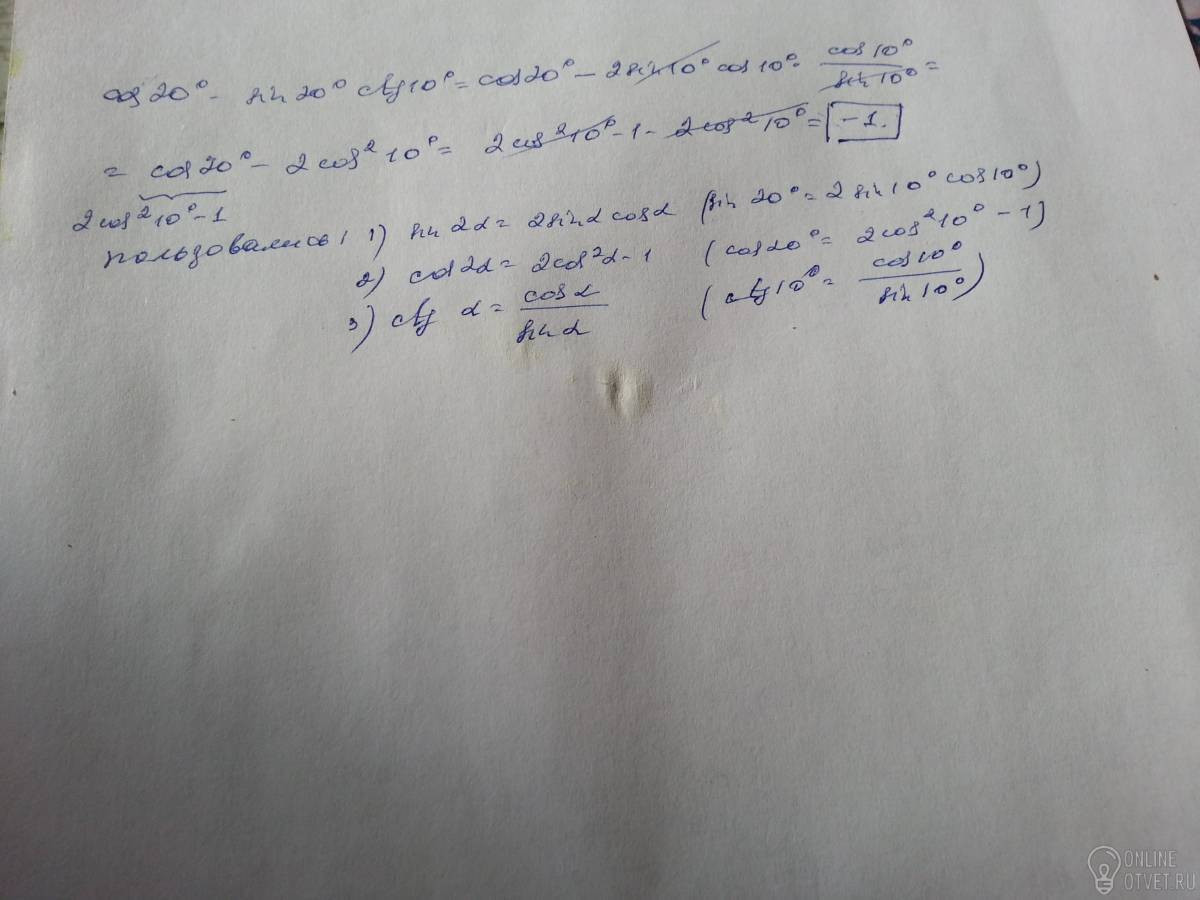 cos 20° - sin 20° ctg 10° = cos 20° - 2 sin 10° cos 10° · cos 10° / sin 10° =
= cos 20° - 2 cos² 10° = 2 cos² 10° - 1 - 2 cos² 10° = -1.
2 cos² 10° - 1
пользовались: 1) sin 2α = 2 sin α cos α (sin 20° = 2 sin 10° cos 10°)
2) cos 2α = 2 cos² α - 1 (cos 20° = 2 cos² 10° - 1)
3) ctg α = cos α / sin α (ctg 10° = cos 10° / sin 10°)
ONLINE
OTVET.RU